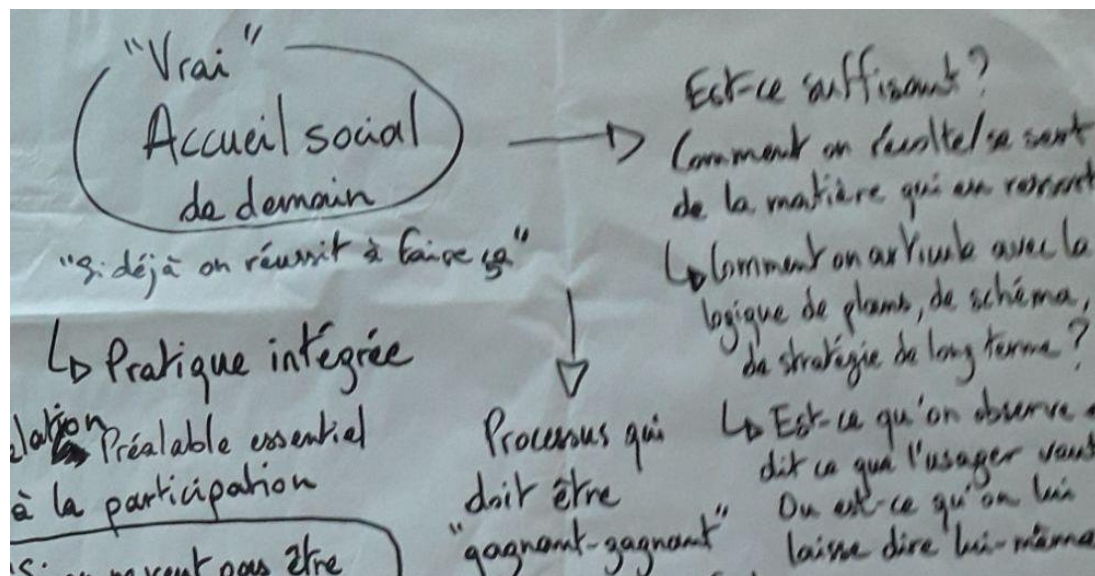 "Vrai"
Accueil social
de demain
"Si déjà on réussit à faire ça"
↳ Pratique intégrée
Préalable essentiel
à la participation
pas être
Processus qui
doit être
"gagnant-gagnant"
Est-ce suffisant ?
Comment on récolte/se sert
de la matière qui en ressort
↳ Comment on articule avec la
logique de plans, de schéma,
de stratégie de long terme ?
↳ Est-ce qu'on observe
dit ce que l'usager veut
Ou est-ce qu'on lui
laisse dire lui-même